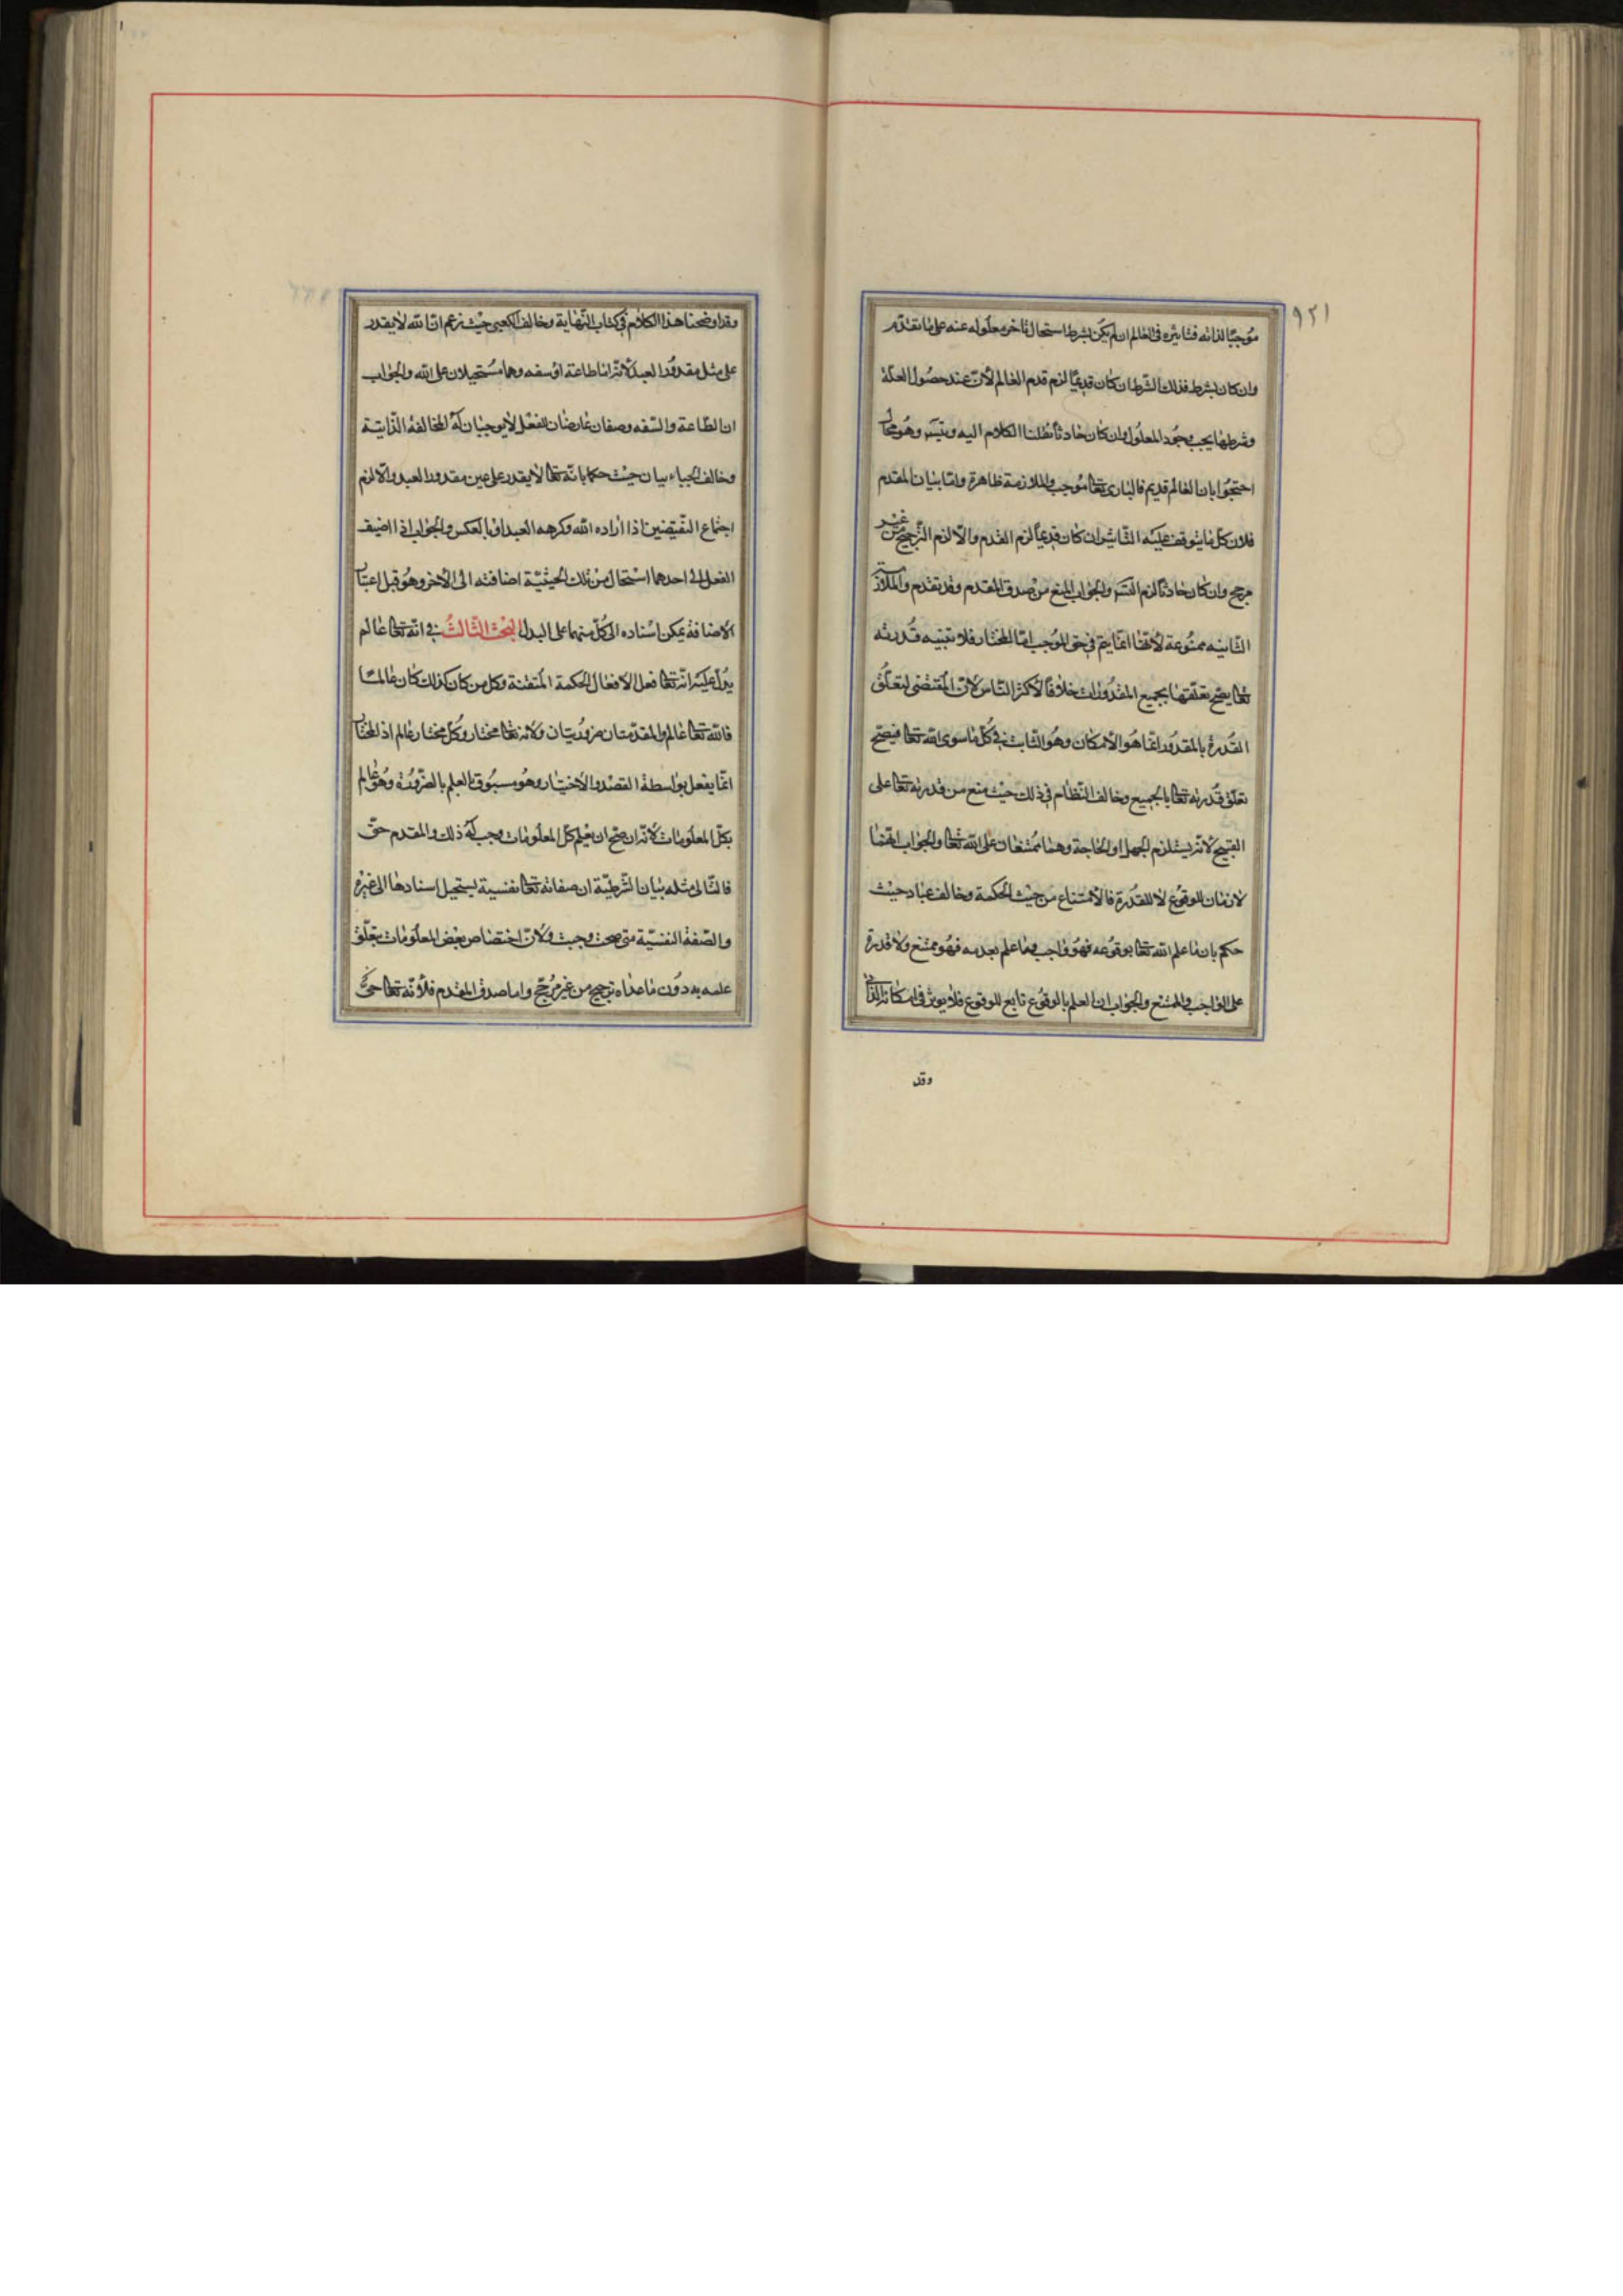 ٩٢١
موجبًا لذاته فتاثيره في العالم ان لم يكن بشرط استحال تاخر معلوله عنه على ما تقدّم
وان كان بشرط فذلك الشرط ان كان قديمًا لزم قدم العالم لانّ عند حصول العلّة
وشرطها يجب وجود المعلول وان كان حادثًا نقلنا الكلام اليه ويتس وهو محال
احتجّوا بان العالم قديم فالباري تعالى موجب والملازمة ظاهرة وامّا بيان المقدم
فلان كل ما يتوقف عليه التاثير ان كان قديمًا لزم القدم والّا لزم الترجيح من غير
مرجح وان كان حادثًا لزم التس والجواب المنع من صدق المقدم وقد تقدم والملازمة
الثانيه ممنوعة لانها انما يتم في حق الموجب امّا المختار فلا تنبيه قدرته
تعالى يصح تعلّقها بجميع المقدورات خلافًا لاكثر الناس لانّ المقتضى لتعلّق
القدرة بالمقدور انّما هو الامكان وهو الثابت في كلّ ما سوى الله تعالى فيصحّ
تعلق قدرته تعالى بالجميع وخالف النّظام في ذلك حيث منع من قدرته تعالى على
القبيح لانّه يستلزم الجهل او الحاجة وهما ممتنعان على الله تعالى والجواب انّهما
لازمان للوقوع لا للقدرة فالامتناع من حيث الحكمة وخالف عباد حيث
حكم بان ما علم الله تعالى بوقوعه فهو واجب وما علم بعدمه فهو ممتنع ولا قدرة
على الواجب والممتنع والجواب ان العلم بالوقوع تابع للوقوع فلا يوثر في امكانه الذاتي
وقد
وقد اوضحنا هذا الكلام في كتاب النّهاية وخالف الكعبي حيث زعم انّ الله لا يقدر
على مثل مقدور العبد لانّه امّا طاعة او سفه وهما مستحيلان على الله والجواب
ان الطّاعة والسّفه وصفان عارضان للفعل لا يوجبان له المخالفة الذّاتيّة
وخالف الجبايىان حيث حكما بانّه تعالى لا يقدر على عين مقدور العبد والّا لزم
اجتماع النّقيضين اذا اراده الله وكرهه العبد او بالعكس والجواب اذا اضيف
الفعل الى احدهما استحال من تلك الحيثيّة اضافته الى الاخر وهو قبل اعتبار
الاضافة يمكن اسناده الى كلّ منهما على البدل البحث الثّالث في انّه تعالى عالم
يدلّ عليه انّه تعالى فعل الافعال الحكمة المتقنة وكل من كان كذلك كان عالمًا
فالله تعالى عالم والمقدّمتان ضروريّتان ولانه تعالى مختار وكل مختار عالم اذ المختار
انّما يفعل بواسطة القصد والاختيار وهو مسبوق بالعلم بالضّرورة وهو عالم
بكلّ المعلومات لانّه ان صحّ ان يعلم كلّ المعلومات وجب له ذلك والمقدم حقّ
فالتّالى مثله بيان الشّرطيّة ان صفاته تعالى نفسية يستحيل اسنادها الى غيره
والصّفة النفسيّة متى صحت وجبت ولانّ اختصاص بعض المعلومات بتعلّق
علمه به دون ما عداه ترجيح من غير مرجّح واما صدق المقدم فلانّه تعالى حىّ